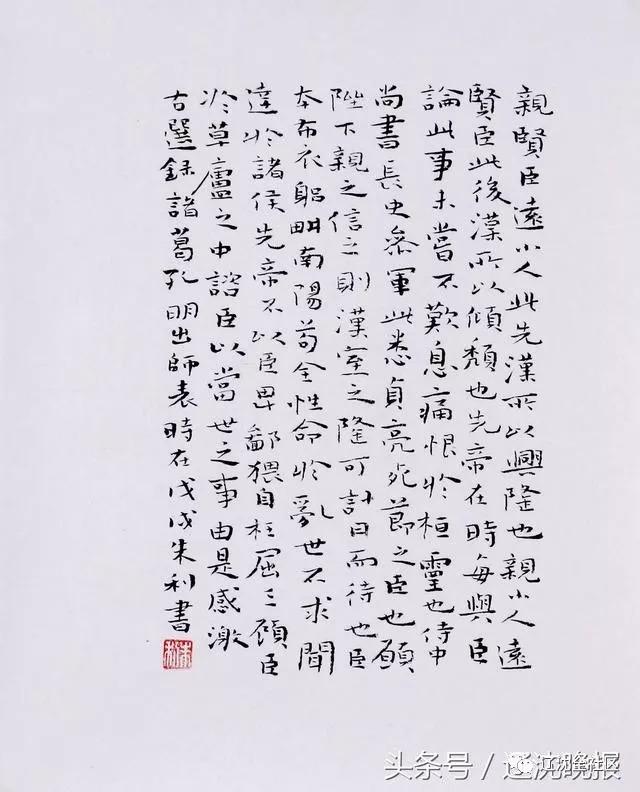 親賢臣遠小人此先漢所以興隆也親小人遠
賢臣此後漢所以傾頹也先帝在時每與臣
論此事未嘗不歎息痛恨於桓靈也侍中
尚書長史參軍此悉貞亮死節之臣也願
陛下親之信之則漢室之隆可計日而待也臣
本布衣躬畊南陽苟全性命於亂世不求聞
達於諸侯先帝不以臣卑鄙猥自枉屈三顧臣
於草廬之中諮臣以當世之事由是感激
古選錄諸葛孔明出師表時在戊戌朱利書
头条号／